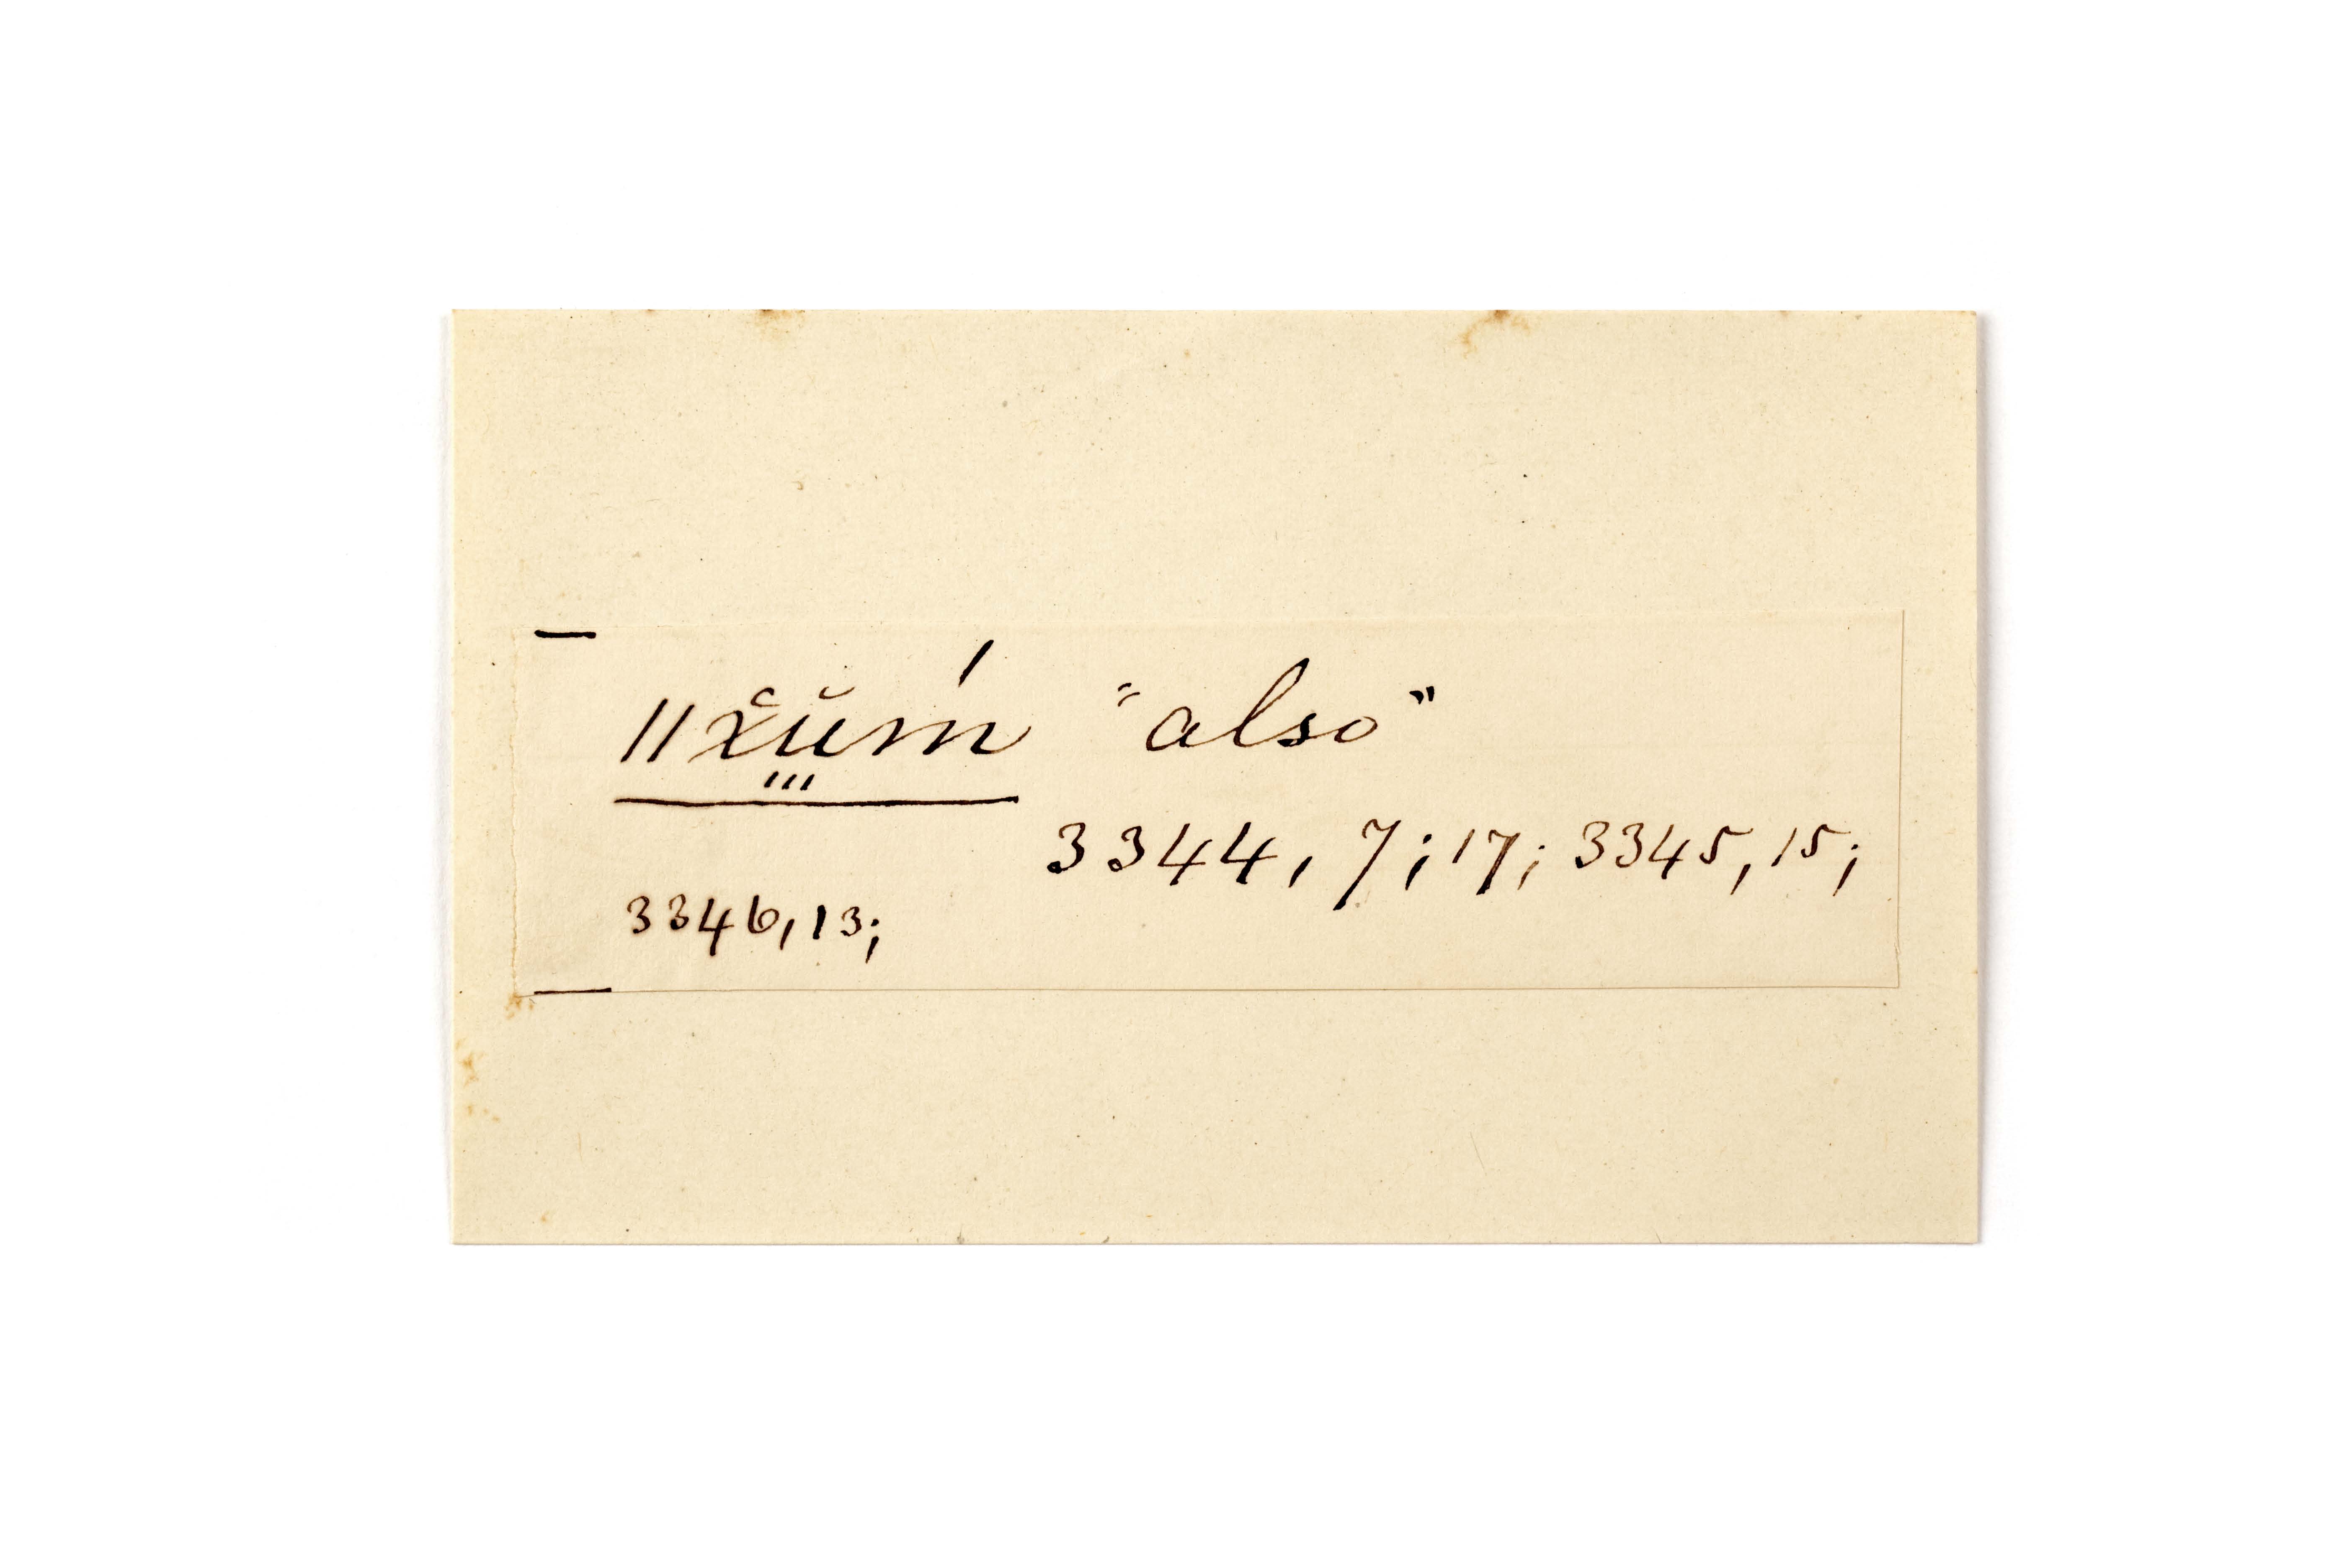 ǁx̆ŭḿ "also"
3344, 7; 17; 3345, 15;
3346, 13;